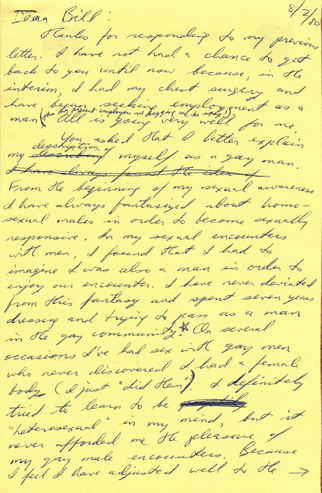 8/2/80
Dear Bill:
Thanks for responding to my previous
letter. I have not had a chance to get
back to you until now because, in the
interim, I had my chest surgery and
have begun seeking employment as a
man All is going very well for me.
You asked that I better explain
description
my myself as a gay man.
From the beginning of my sexual awareness
I have always fantasized about homo-
sexual males in order to become sexually
responsive. In my sexual encounters
with men, I found that I had to
imagine I was also a man in order to
enjoy our encounter. I have never deviated
from this fantasy and spent seven years
dressing and trying to pass as a man
in the gay community. On several
occasions I've had sex with gay men
who never discovered I had a female
body (I just "did them"). I definitely
tried to learn to be
"heterosexual" in my mind, but it
never afforded me the pleasure of
my gay male encounters. Because
I feel I have adjusted well to the →